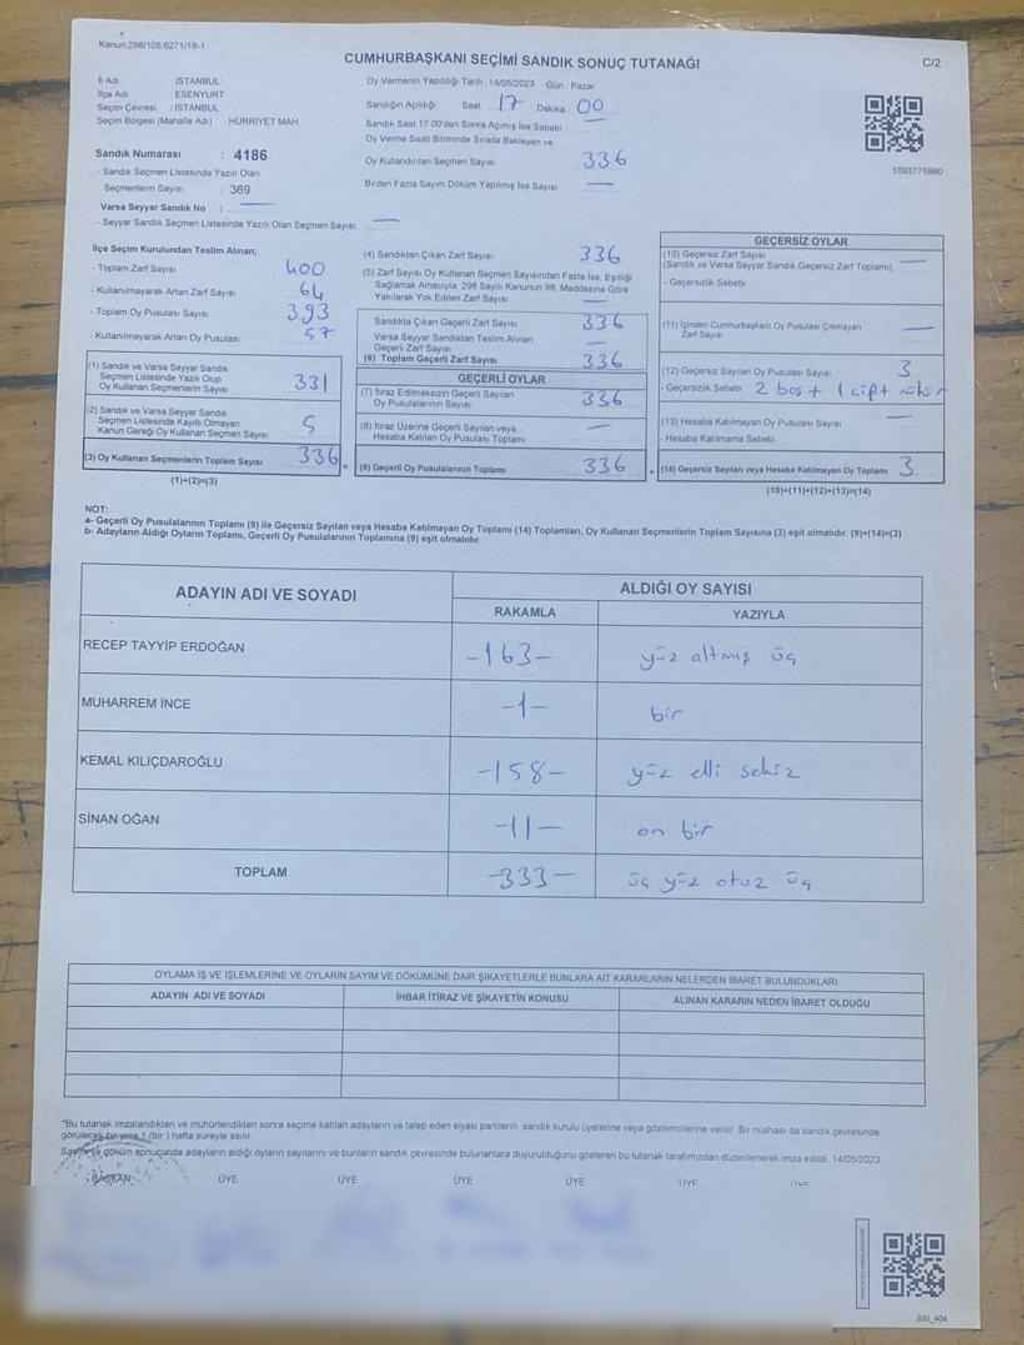 Kanun:298/108.6271/19-1
CUMHURBAŞKANI SEÇİMİ SANDIK SONUÇ TUTANAĞI
C/2
İli Adı : İSTANBUL
İlçe Adı : ESENYURT
Seçim Çevresi : İSTANBUL
Seçim Bölgesi (Mahalle Adı) : HÜRRİYET MAH.
Sandık Numarası : 4186
Sandık Seçmen Listesinde Yazılı Olan
Seçmenlerin Sayısı : 369
Varsa Seyyar Sandık No :
Seyyar Sandık Seçmen Listesinde Yazılı Olan Seçmen Sayısı:
Oy Vermenin Yapıldığı Tarih : 14/05/2023 Gün : Pazar
Sandığın Açıldığı Saat : 17 Dakika : 00
Sandık Saat 17.00'dan Sonra Açılmış İse Sebebi
Oy Verme Saati Bitiminde Sırada Bekleyen ve
Oy Kullandırılan Seçmen Sayısı 336
Birden Fazla Sayım Döküm Yapılmış İse Sayısı
İlçe Seçim Kurulundan Teslim Alınan;
- Toplam Zarf Sayısı 400
- Kullanılmayarak Artan Zarf Sayısı 64
- Toplam Oy Pusulası Sayısı 393
- Kullanılmayarak Artan Oy Pusulası 57
(1) Sandık ve Varsa Seyyar Sandık
Seçmen Listesinde Yazılı Olup
Oy Kullanan Seçmenlerin Sayısı 331
(2) Sandık ve Varsa Seyyar Sandık
Seçmen Listesinde Kayıtlı Olmayan
Kanun Gereği Oy Kullanan Seçmen Sayısı 5
(3) Oy Kullanan Seçmenlerin Toplam Sayısı 336
(1)+(2)=(3)
(4) Sandıktan Çıkan Zarf Sayısı 336
(5) Zarf Sayısı Oy Kullanan Seçmen Sayısından Fazla İse, Eşitliği
Sağlamak Amacıyla, 298 Sayılı Kanunun 98. Maddesine Göre
Yakılarak Yok Edilen Zarf Sayısı
Sandıkta Çıkan Geçerli Zarf Sayısı 336
Varsa Seyyar Sandıktan Teslim Alınan
Geçerli Zarf Sayısı
(6) Toplam Geçerli Zarf Sayısı 336
GEÇERLİ OYLAR
(7) İtiraz Edilmeksizin Geçerli Sayılan
Oy Pusulalarının Sayısı 336
(8) İtiraz Üzerine Geçerli Sayılan veya
Hesaba Katılan Oy Pusulası Toplamı
(9) Geçerli Oy Pusulalarının Toplamı 336
GEÇERSİZ OYLAR
(10) Geçersiz Zarf Sayısı
(Sandık ve Varsa Seyyar Sandık Geçersiz Zarf Toplamı)
- Geçersizlik Sebebi
(11) İçinden Cumhurbaşkanı Oy Pusulası Çıkmayan
Zarf Sayısı
(12) Geçersiz Sayılan Oy Pusulası Sayısı 3
- Geçersizlik Sebebi 2 boş + 1 çift mühür
(13) Hesaba Katılmayan Oy Pusulası Sayısı
- Hesaba Katılmama Sebebi
(14) Geçersiz Sayılan veya Hesaba Katılmayan Oy Toplamı 3
(10)+(11)+(12)+(13)=(14)
NOT:
a- Geçerli Oy Pusulalarının Toplamı (9) ile Geçersiz Sayılan veya Hesaba Katılmayan Oy Toplamı (14) Toplamları, Oy Kullanan Seçmenlerin Toplam Sayısına (3) eşit olmalıdır. (9)+(14)=(3)
b- Adayların Aldığı Oyların Toplamı, Geçerli Oy Pusulalarının Toplamına (9) eşit olmalıdır.
ADAYIN ADI VE SOYADI
ALDIĞI OY SAYISI
RAKAMLA
YAZIYLA
RECEP TAYYİP ERDOĞAN -163- yüz altmış üç
MUHARREM İNCE -1- bir
KEMAL KILIÇDAROĞLU -158- yüz elli sekiz
SİNAN OĞAN -11- on bir
TOPLAM -333- üç yüz otuz üç
OYLAMA İŞ VE İŞLEMLERİNE VE OYLARIN SAYIM VE DÖKÜMÜNE DAİR ŞİKAYETLERLE BUNLARA AİT KARARLARIN NELERDEN İBARET BULUNDUKLARI
ADAYIN ADI VE SOYADI
İHBAR İTİRAZ VE ŞİKAYETİN KONUSU
ALINAN KARARIN NEDEN İBARET OLDUĞU
"Bu tutanak imzalandıktan ve mühürlendikten sonra seçime katılan adayların ve talep eden siyasi partilerin sandık kurulu üyelerine veya gözlemcilerine verilir. Bir nüshası da sandık çevresinde
görülecek bir yere 1 (bir ) hafta süreyle asılır.
döküm sonucunda adayların aldığı oyların sayılarını ve bunların sandık çevresinde bulunanlara duyurulduğunu gösteren bu tutanak tarafımızdan düzenlenerek imza edildi. 14/05/2023
BAŞKAN ÜYE ÜYE ÜYE ÜYE ÜYE ÜYE